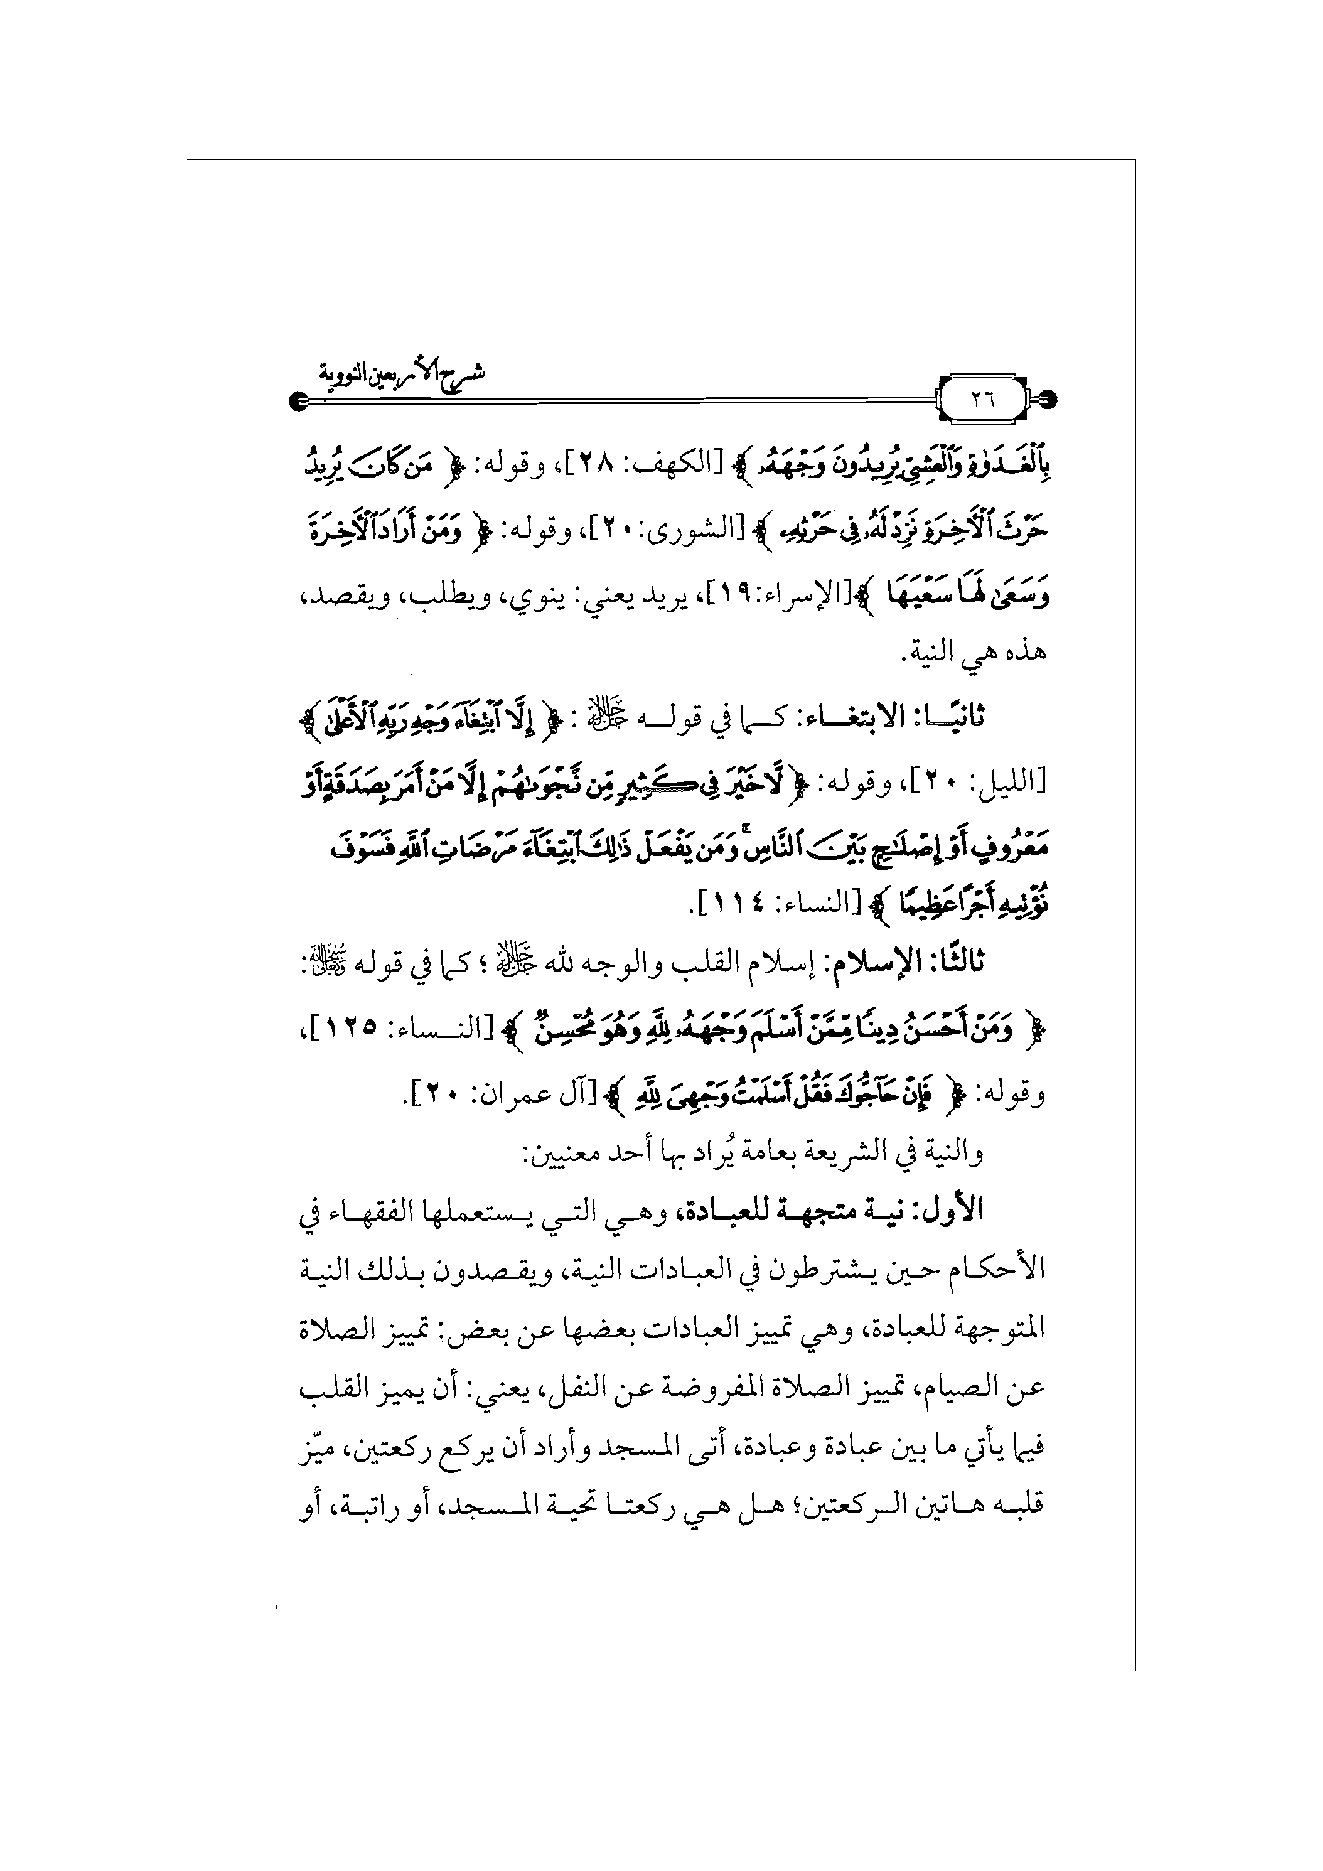 شرح الأربعين النووية
٢٦
بِٱلْغَدَوٰةِ وَٱلْعَشِىِّ يُرِيدُونَ وَجْهَهُۥ ﴾ [الكهف: ٢٨]، وقوله: ﴿ مَن كَانَ يُرِيدُ
حَرْثَ ٱلْآخِرَةِ نَزِدْ لَهُۥ فِى حَرْثِهِۦ ﴾ [الشورى: ٢٠]، وقوله: ﴿ وَمَنْ أَرَادَ ٱلْآخِرَةَ
وَسَعَىٰ لَهَا سَعْيَهَا ﴾ [الإسراء: ١٩]، يريد يعني: ينوي، ويطلب، ويقصد،
هذه هي النية.
ثانيًا: الابتغاء: كما في قوله ﷻ : ﴿ إِلَّا ٱبْتِغَآءَ وَجْهِ رَبِّهِ ٱلْأَعْلَىٰ ﴾
[الليل: ٢٠]، وقوله: ﴿ لَّا خَيْرَ فِى كَثِيرٍ مِّن نَّجْوَىٰهُمْ إِلَّا مَنْ أَمَرَ بِصَدَقَةٍ أَوْ
مَعْرُوفٍ أَوْ إِصْلَٰحٍۭ بَيْنَ ٱلنَّاسِ ۚ وَمَن يَفْعَلْ ذَٰلِكَ ٱبْتِغَآءَ مَرْضَاتِ ٱللَّهِ فَسَوْفَ
نُؤْتِيهِ أَجْرًا عَظِيمًا ﴾ [النساء: ١١٤].
ثالثًا: الإسلام: إسلام القلب والوجه لله ﷻ ؛ كما في قوله :
﴿ وَمَنْ أَحْسَنُ دِينًا مِّمَّنْ أَسْلَمَ وَجْهَهُۥ لِلَّهِ وَهُوَ مُحْسِنٌ ﴾ [النساء: ١٢٥]،
وقوله: ﴿ فَإِنْ حَآجُّوكَ فَقُلْ أَسْلَمْتُ وَجْهِىَ لِلَّهِ ﴾ [آل عمران: ٢٠].
والنية في الشريعة بعامة يُراد بها أحد معنيين:
الأول: نية متجهة للعبادة، وهي التي يستعملها الفقهاء في
الأحكام حين يشترطون في العبادات النية، ويقصدون بذلك النية
المتوجهة للعبادة، وهي تمييز العبادات بعضها عن بعض: تمييز الصلاة
عن الصيام، تمييز الصلاة المفروضة عن النفل، يعني: أن يميز القلب
فيما يأتي ما بين عبادة وعبادة، أتى المسجد وأراد أن يركع ركعتين، ميّز
قلبه هاتين الركعتين؛ هل هي ركعتا تحية المسجد، أو راتبة، أو